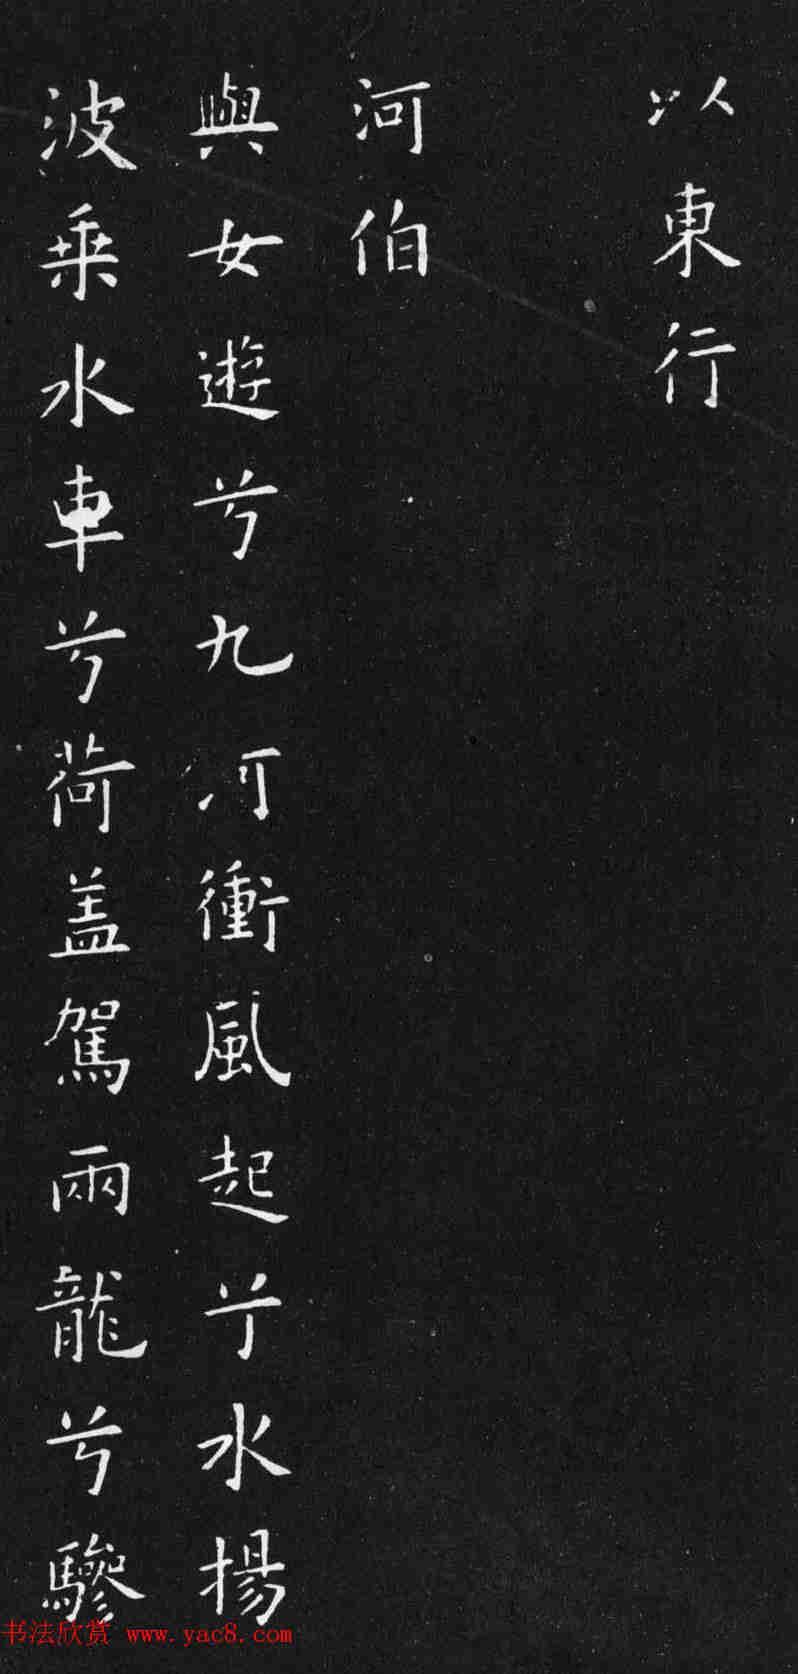 以東行
河伯
與女遊兮九河衝風起兮水揚
波乗水車兮荷盖駕兩龍兮驂
书法欣赏 www.yac8.com